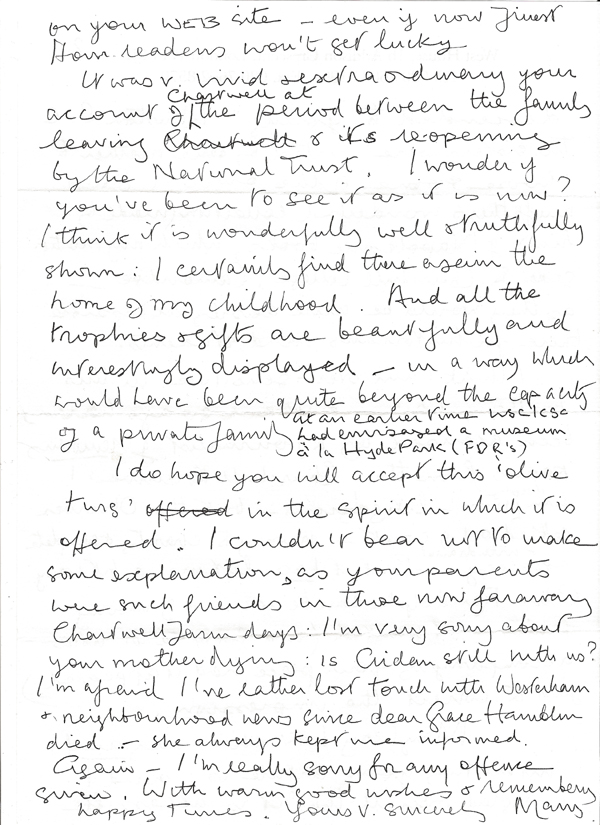 on your WEB site – even if now Finest
Hour readers won't get lucky
It was v. vivid & extraordinary your
Chartwell at
account of the period between the family
leaving Chartwell & its reopening
by the National Trust. I wonder if
you've been to see it as it is now?
I think it is wonderfully well & truthfully
shown: I certainly find there again the
home of my childhood. And all the
trophies & gifts are beautifully and
interestingly displayed – in a way which
would have been quite beyond the capacity
of a private family
at an earlier time WSC/CSC
had envisaged a museum
à la Hyde Park (FDR's)
I do hope you will accept this 'olive
twig' offered in the spirit in which it is
offered. I couldn't bear not to make
some explanation, as your parents
were such friends in those now faraway
Chartwell Farm days: I'm very sorry about
your mother dying: is still with us?
I'm afraid I've rather lost touch with Westerham
& neighbourhood news since dear Grace Hamblin
died – she always kept me informed.
Again – I'm really sorry for any offence
given. With warm good wishes & remembering
happy times. Yours v. sincerely Mary